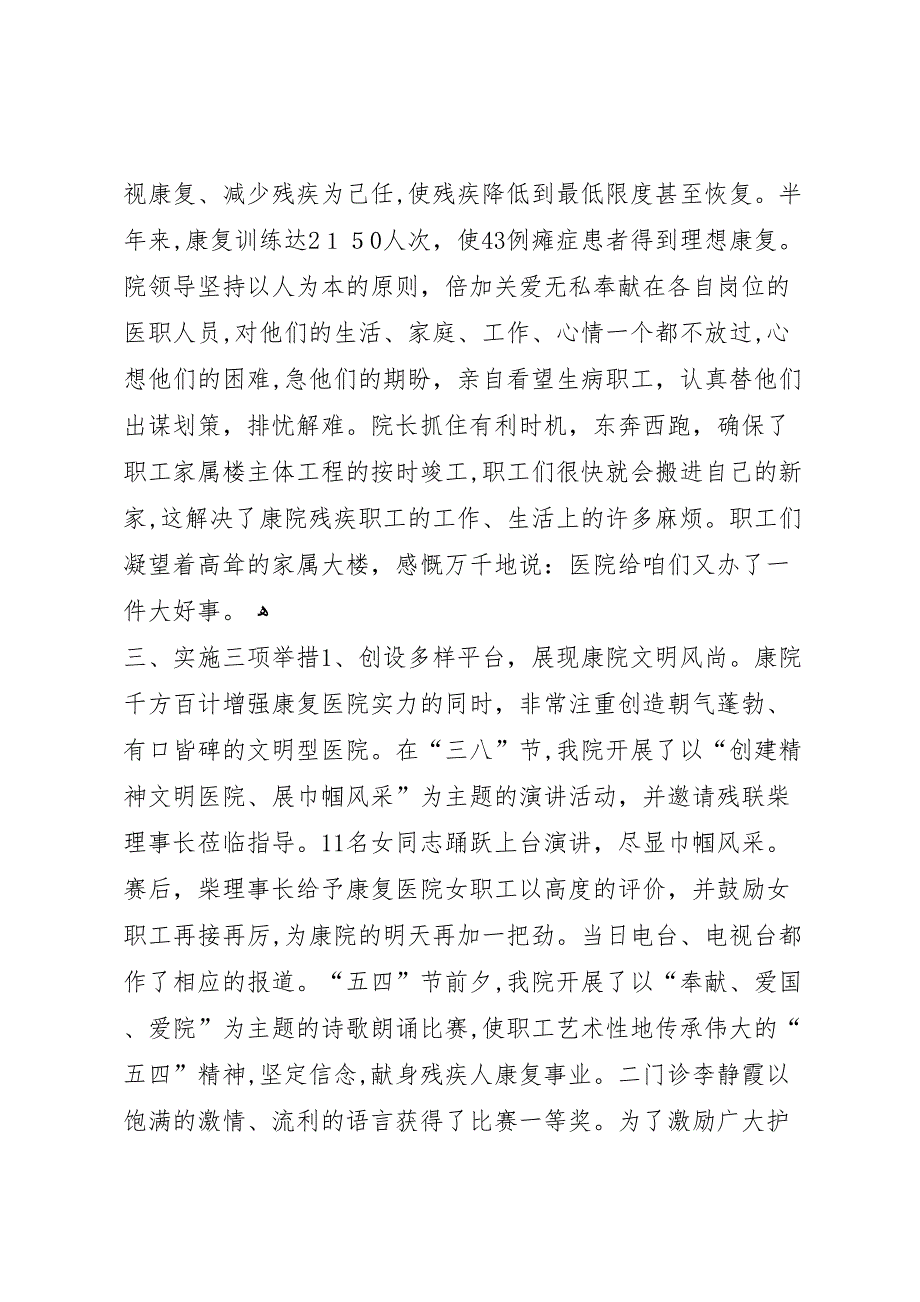 视康复、减少残疾为己任,使残疾降低到最低限度甚至恢复。半
年来,康复训练达2150人次，使43例瘫症患者得到理想康复。
院领导坚持以人为本的原则，倍加关爱无私奉献在各自岗位的
医职人员,对他们的生活、家庭、工作、心情一个都不放过,心
想他们的困难,急他们的期盼，亲自看望生病职工，认真替他们
出谋划策，排忧解难。院长抓住有利时机，东奔西跑，确保了
职工家属楼主体工程的按时竣工,职工们很快就会搬进自己的新
家,这解决了康院残疾职工的工作、生活上的许多麻烦。职工们
凝望着高耸的家属大楼，感慨万千地说：医院给咱们又办了一
件大好事。 ﻫ
三、实施三项举措1、创设多样平台，展现康院文明风尚。康院
千方百计增强康复医院实力的同时，非常注重创造朝气蓬勃、
有口皆碑的文明型医院。在“三八”节,我院开展了以“创建精
神文明医院、展巾帼风采”为主题的演讲活动，并邀请残联柴
理事长莅临指导。11名女同志踊跃上台演讲，尽显巾帼风采。
赛后，柴理事长给予康复医院女职工以高度的评价，并鼓励女
职工再接再厉,为康院的明天再加一把劲。当日电台、电视台都
作了相应的报道。“五四”节前夕,我院开展了以“奉献、爱国
、爱院”为主题的诗歌朗诵比赛,使职工艺术性地传承伟大的“
五四”精神,坚定信念,献身残疾人康复事业。二门诊李静霞以
饱满的激情、流利的语言获得了比赛一等奖。为了激励广大护